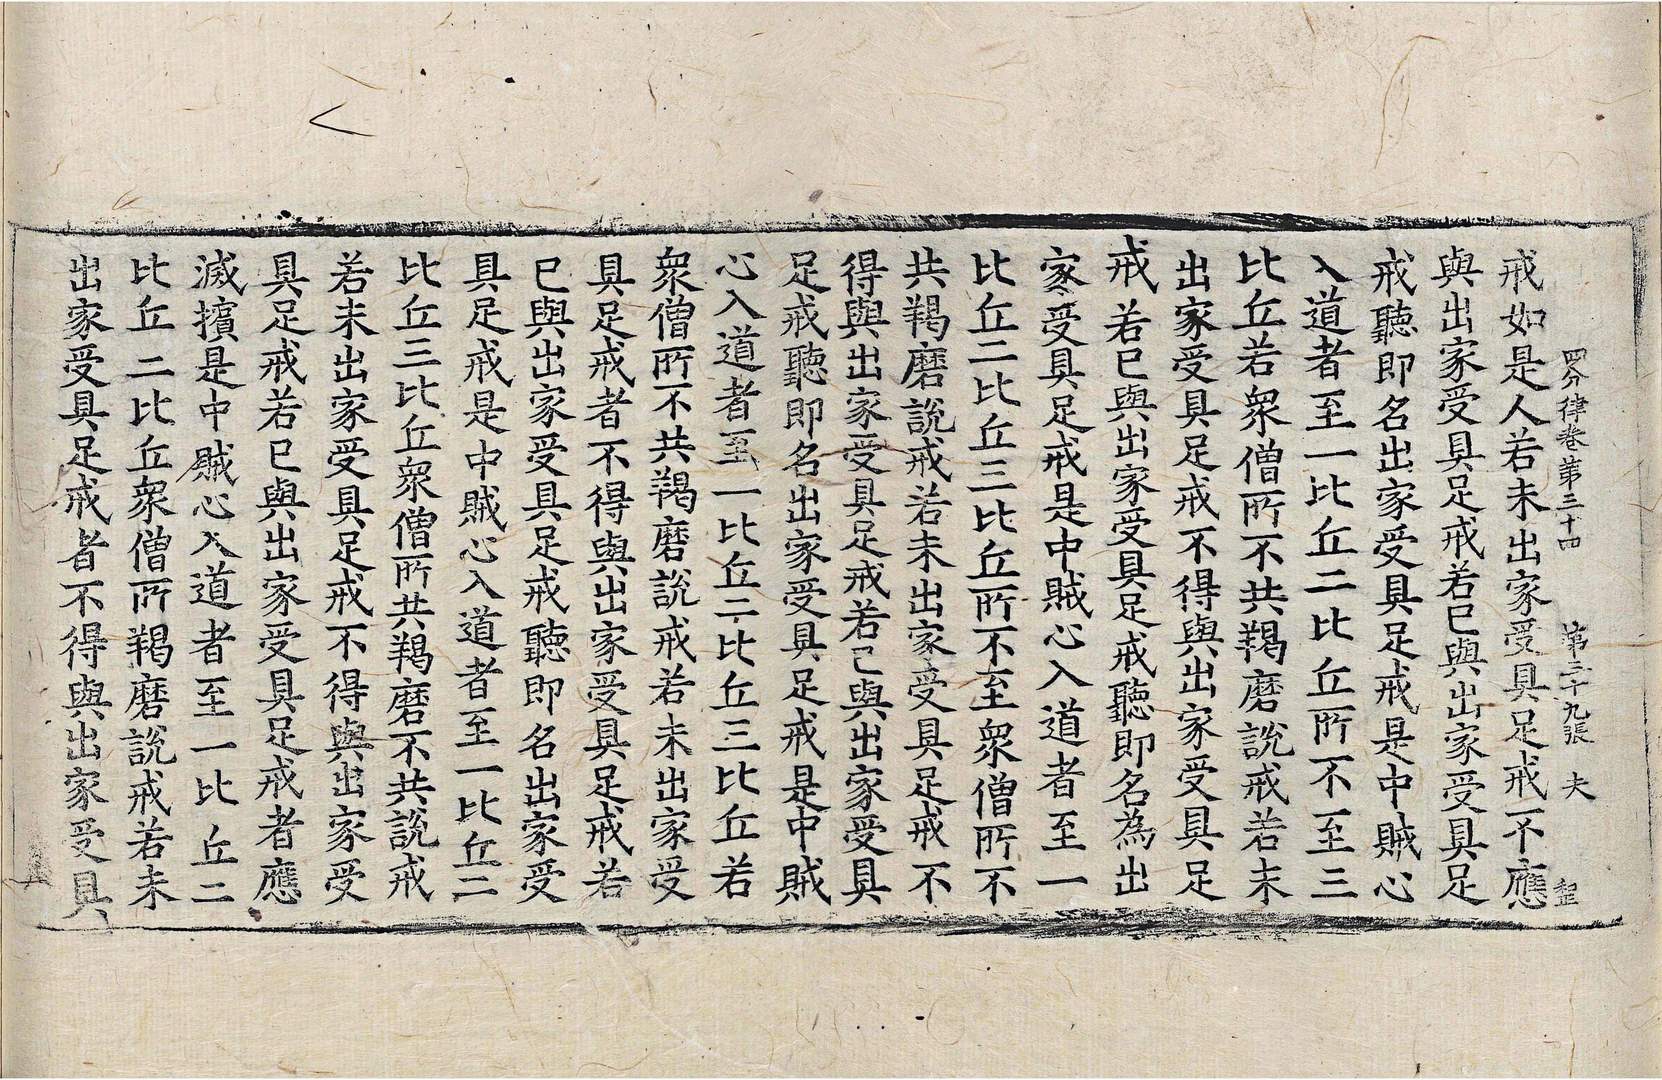 四分律卷第三十四 第二十九張 夫
戒如是人若未出家受具足戒不應
與出家受具足戒若已與出家受具足
戒聽即名出家受具足戒是中賊心
入道者至一比丘二比丘所不至三
比丘若衆僧所不共羯磨說戒若未
出家受具足戒不得與出家受具足
戒若已與出家受具足戒聽即名為出
家受具足戒是中賊心入道者至一
比丘二比丘三比丘所不至衆僧所不
共羯磨說戒若未出家受具足戒不
得與出家受具足戒若已與出家受具
足戒聽即名出家受具足戒是中賊
心入道者至一比丘二比丘三比丘若
衆僧所不共羯磨說戒若未出家受
具足戒者不得與出家受具足戒若
已與出家受具足戒聽即名出家受
具足戒是中賊心入道者至一比丘二
比丘三比丘衆僧所共羯磨不共說戒
若未出家受具足戒不得與出家受
具足戒若已與出家受具足戒者應
滅擯是中賊心入道者至一比丘二
比丘二比丘衆僧所羯磨說戒若未
出家受具足戒者不得與出家受具